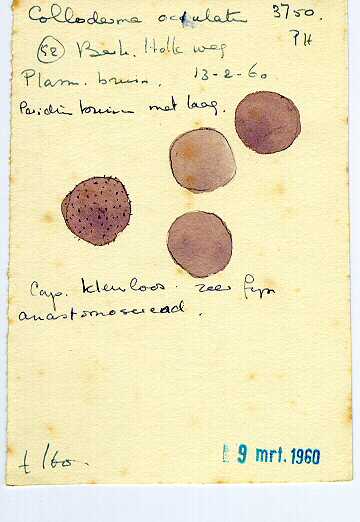 Colloderma oculatum 3750.
PH
(52) Berk. Holk weg
Plasm. bruin. 13-2-60
Peridie bruin met laag.
Cap. kleurloos. zeer fijn
anastomoserend.
t/60.
9 mrt. 1960